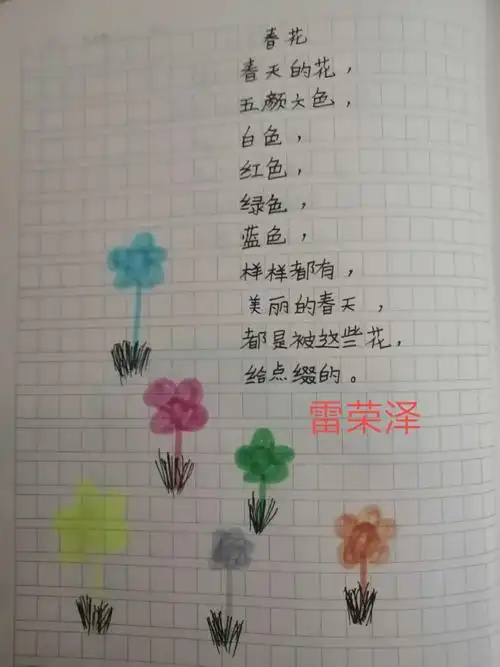 春花
春天的花，
五颜六色，
白色，
红色，
绿色，
蓝色，
样样都有，
美丽的春天，
都是被这些花，
给点缀的。
雷荣泽